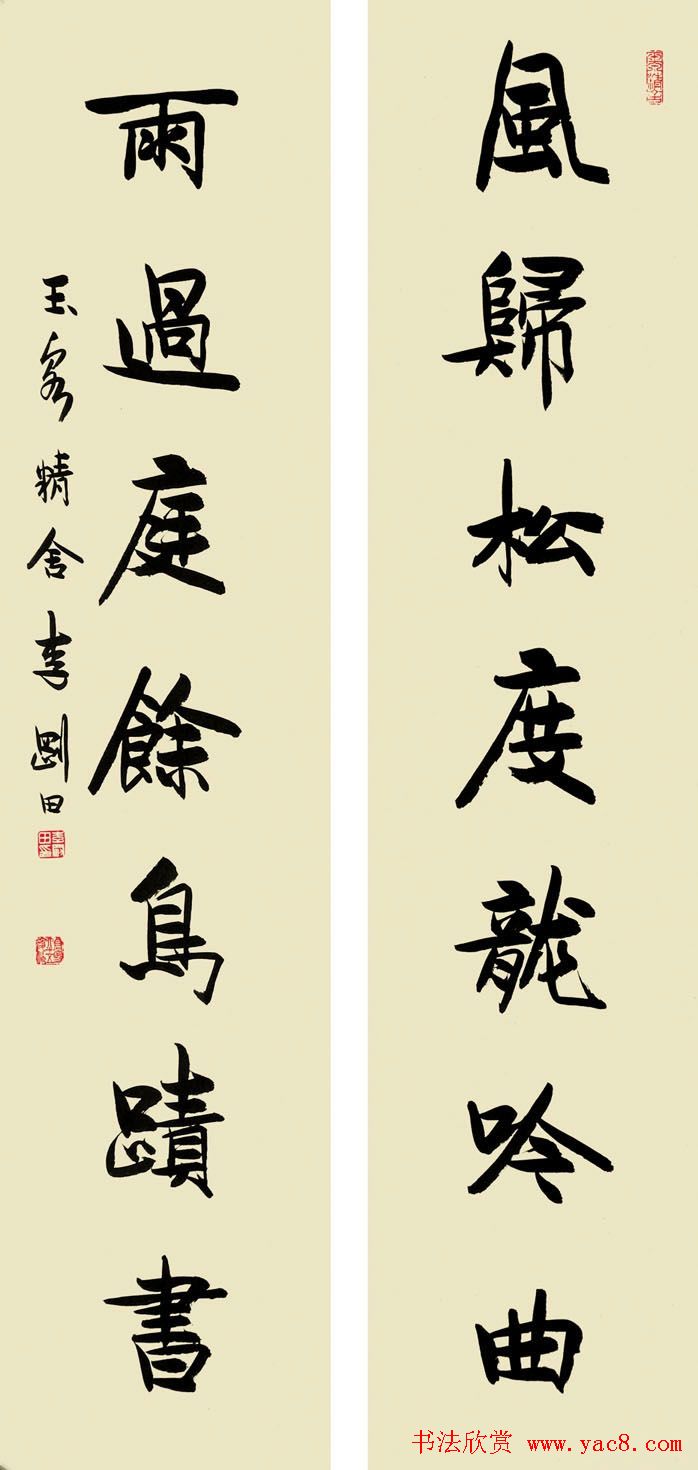 風歸松度龍吟曲
雨過庭餘鳥蹟書
玉泉精舍李剛田
书法欣赏 www.yac8.com